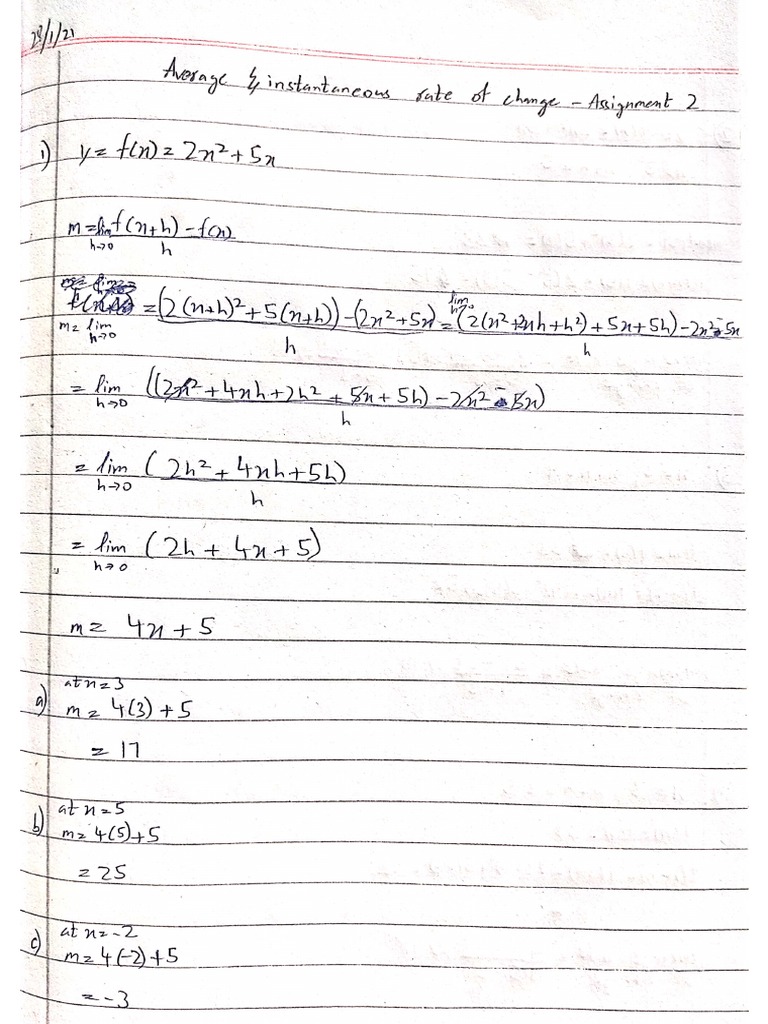 28/1/21
Average & instantaneous rate of change - Assignment 2
1) y = f(x) = 2x² + 5x
m = lim h→0 f(x+h) - f(x) / h
m = lim h→0 = (2(x+h)² + 5(x+h)) - (2x² + 5x) / h = lim h→0 (2(x² + 2xh + h²) + 5x + 5h) - 2x² - 5x / h
= lim h→0 ((2x² + 4xh + 2h² + 5x + 5h) - 2x² - 5x) / h
= lim h→0 (2h² + 4xh + 5h) / h
= lim h→0 (2h + 4x + 5)
m = 4x + 5
a) at x = 3
m = 4(3) + 5
= 17
b) at x = 5
m = 4(5) + 5
= 25
c) at x = -2
m = 4(-2) + 5
= -3